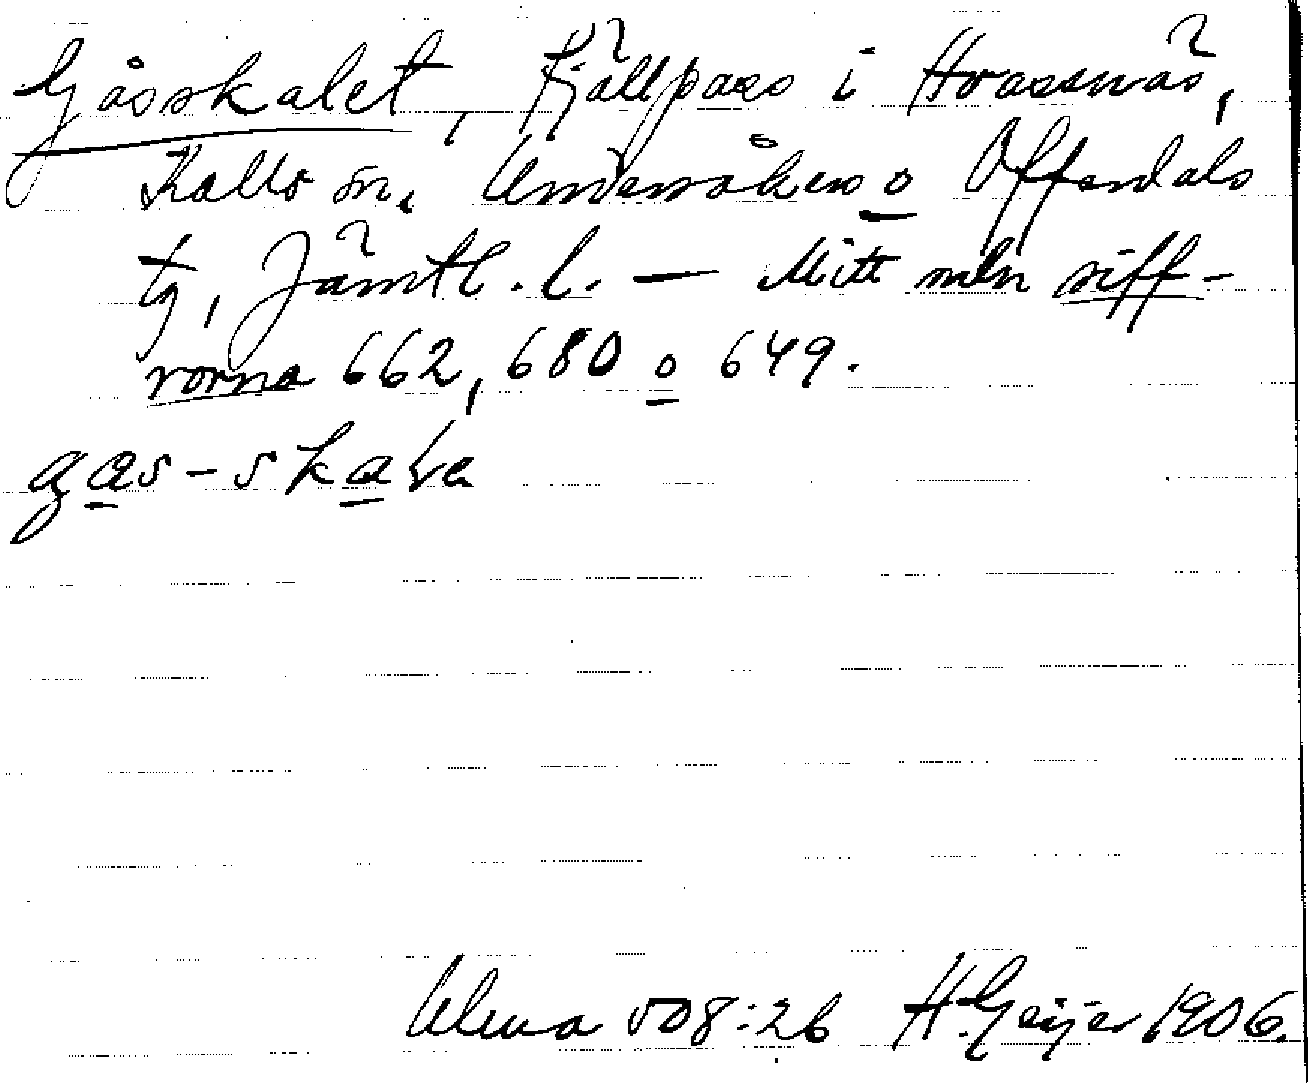 Gåsskalet, Fjällpass i Hvassnäs,
Kalls sn, Undersåkers o Offerdals
tg, Jämtl. l. — Mitt mln siff-
rorna 662, 680 o 649.
gas-skaLa
Ulma 508:26 H. Geijer 1906.